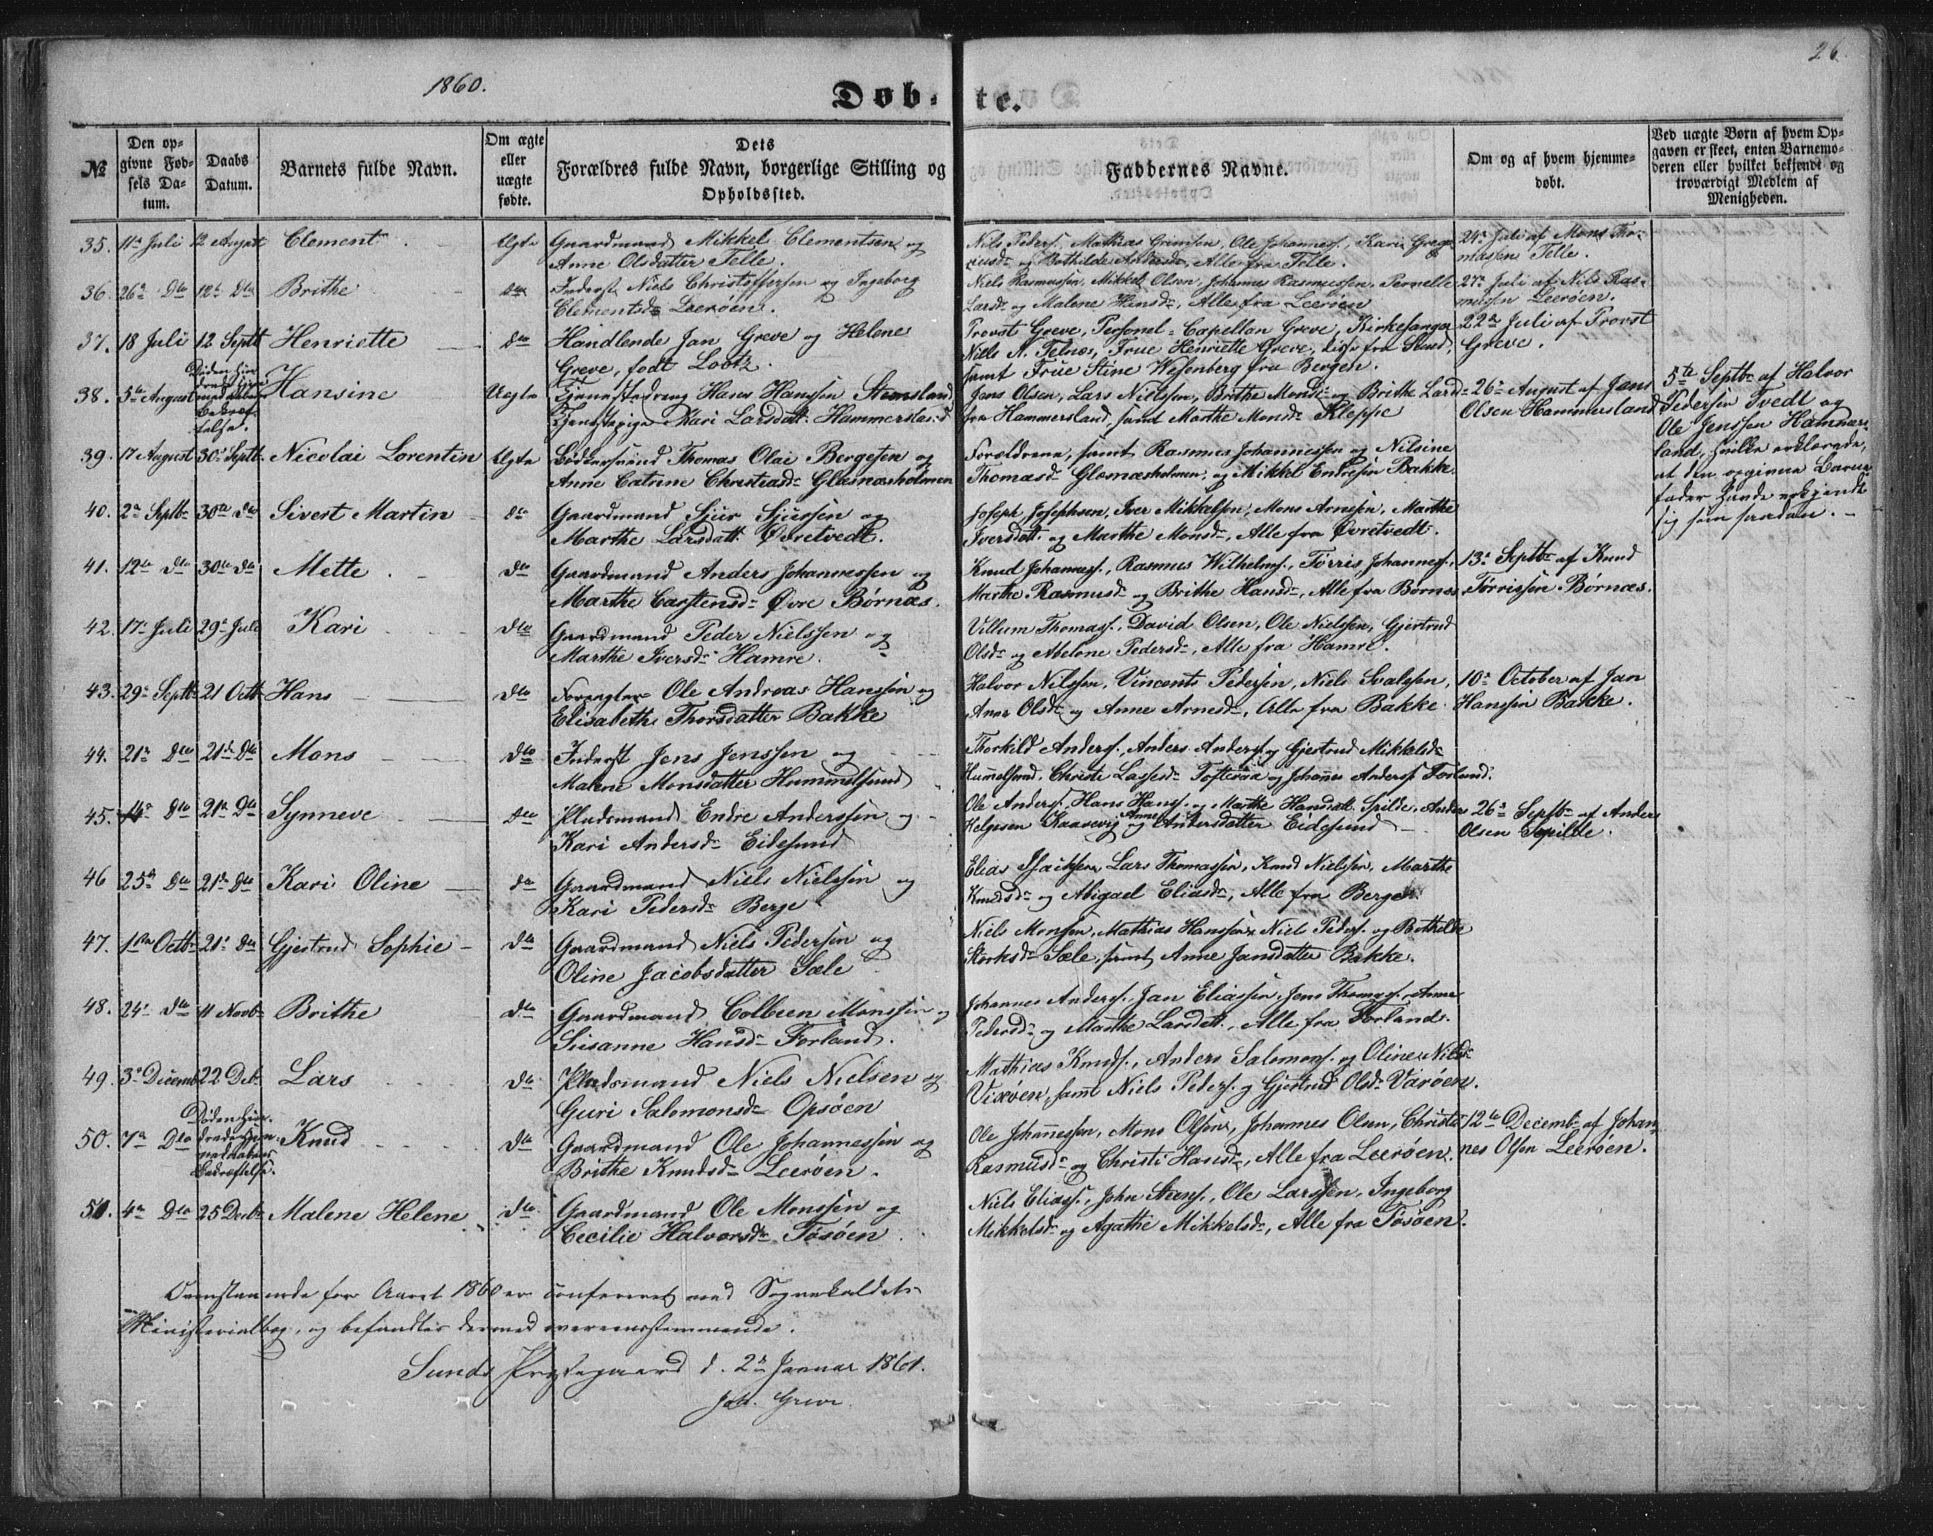 1860.
26
Døb-te.
№
Den op-
givne Fød-
sels Da-
tum.
Daabs
Datum.
Barnets fulde Navn.
Om ægte
eller
uægte
fødte.
Dets
Forældres fulde Navn, borgerlige Stilling og
Opholdssted.
Faddernes Navne.
Om og af hvem hjemme-
døbt.
Ved uægte Børn af hvem Op-
gaven er skeet, enten Barnemo-
deren eller hvilket bekjendt og
troværdigt Medlem af
Menigheden.
35. 11te Juli 12 August Clement Ægte Gaardmand Mikkel Clementsen og
Anne Olsdatter Telle.
Nils Peders., Mathias Grimsen, Ole Johannes., Kari Greg-
og Bothilde Alle fra Telle.
24de Juli af Mons Tho-
masen Telle.
36. 26de Dto 12te Dto Brithe Dto Inderst Niels Christoffersen og Ingeborg
Clementsdr Leerøen.
Niels Rasmussen, Mikkel Olsen, Johannes Rasmussen, Pernelle
Larsdr og Malene Hansdr, Alle fra Leerøen
27de Juli af Nils Ras-
mussen Leerøen.
37. 18 Juli 12 Septb Henriette Dto Handlende Jan Greve og Helene
Greve, født Lootz.
Provst Greve, Personel-Capellan Greve, Kirkesanger
Niels N. Telnes, Frue Henriette Greve, disse fra Sund,
samt Frue Stine Wesenberg fra Bergen.
22de Juli af Provst
Greve.
38. 5te August Døden hin-
drede
med
Bekræf-
telse. Hansine Uægte Tjenestedreng Hans Hanssen Steensland
Tjenestepige Kari Larsdatt. Hammersland
Jens Olsen, Lars Nielssen, Brithe Monsdr og Brithe Larsdr
fra Hammersland, samt Marthe Monsdr Kleppe
26de August af Jens
Olsen Hammersland
5te Septbr af Halvor
Pedersen Tvedt og
Ole Jenssen Hammers-
land, hvilke erklærede,
at den opgivne Barne-
fader havde erkjendt
sig som saadan.
39. 17 August 30te Septb. Nicolai Lorentin Ægte Thomas Olai Bergesen og
Anne Catrine Christiansdr Glæsnæsholmen
Forældrene, samt Rasmus Johannessen og Nilsine
Thomasdr Glæsnæsholmen, og Mikkel Endresen Bakke.
40. 2den Septbr 30te Dto Sivert Martin Dto Gaardmand Sjur Sjurssen og
Marthe Larsdatt. Øvretvedt.
Joseph Josephsen, Iver Mikkelsen, Mons Arnesen, Marthe
Iversdatt. og Marthe Monsdr, Alle fra Øvretvedt.
41. 12te Dto 30te Dto Mette Dto Gaardmand Anders Johannessen og
Marthe Carstensdr Øvre Børnæs.
Knud Johannes., Rasmus Wilhelms., Torris Johannes.,
Marthe Rasmusdr og Brithe Hansdr, Alle fra Børnæs
13de Septbr af Knud
Tørrissen Børnæs.
42. 17de Juli 29de Juli Kari Dto Gaardmand Peder Nielssen og
Marthe Iversdr Hamre.
Villum Thomas., David Olsen, Ole Nielssen, Gjertrud
Olsdr og Abelone Pedersdr, Alle fra Hamre.
43. 29de Septbr 21 Octb. Hans Dto Forpagter Ole Andreas Hanssen og
Elisabeth Thorsdatter Bakke
Halvor Nilssen, Vincents Pedersen, Niels Svalssen,
Anne Olsdr og Anne Arnesdr, Alle fra Bakke
10de October af Jan
Hanssen Bakke.
44. 21de Dto 21de Dto Mons Dto Inderst Jens Jenssen og
Malene Monsdatter Hummelsund
Thorkild Anders., Anders Anders. og Gjertrud Mikkelsdr
Hummelsund, Christi Lassesdr Tofterøen og Johannes Anders. Forland.
45. 14de Dto 21de Dto Synneve Dto Pladsmand Endre Anderssen og
Kari Andersdr Eidesund
Ole Anders., Hans Hans. og Marthe Hansdatt. Spilde, Anders
Helgesen Kaarevig og Anne Andersdatter Eidesund
26de Septbr af Anders
Olsen Spilde.
46 25de Dto 21de Dto Kari Oline Dto Gaardmand Niels Nielssen og
Kari Pedersdr Berge
Elias Isaksen, Lars Thomassen, Knud Nielssen, Marthe
Knudsdr og Abigael Eliasdr, Alle fra Berge.
47. 1ste Octbr 21de Dto Gjertrud Sophie Dto Gaardmand Niels Pedersen og
Oline Jacobsdatter Sæle
Niels Monsen, Mathias Hanssen, Niels Peders. og Bothilde
Størksdr Sæle, samt Anne Jansdatter Bakke.
48. 24de Dto 11 Novbr Brithe Dto Gaardmand Colbeen Monssen og
Susanne Hansdr Forland.
Johannes Anders., Jan Eliassen, Jens Thomas., Anne
Pedersdr og Marthe Larsdatt., Alle fra Forland.
49. 3de Decemb 22 Deb. Lars Dto Pladsmand Niels Nielsen og
Guri Salomonsdr Opsøen
Mathias Knuds., Anders Salomons. og Oline Nilsdr
Vixøen, samt Niels Peders. og Gjertrud Olsdr Varøen.
50. 7de Dto Døden hin-
drede
med
Bekræftelse. Knud Dto Gaardmand Ole Johannessen og
Brithe Knudsdr Leerøen.
Ole Johannessen, Mons Olsen, Johannes Olsen, Christi
Rasmusdr og Christi Hansdr, Alle fra Leerøen.
12te Decembr af Johan-
nes Olsen Leerøen.
51. 4de Dto 25 Decbr Malene Helene Dto Gaardmand Ole Monssen og
Cecilie Halvorsdr Tøsøen.
Niels Elias., John Stens., Ole Larssen, Ingeborg
Mikkelsdr og Agathe Mikkelsdr, Alle fra Tøsøen.
Ovenstaaende for Aaret 1860 er confereret med Sognekaldets
Ministerialbog, og befandtes dermed overeensstemmende.
Sunds Præstegaard d. 2den Januar 1861.
Joh. Greve